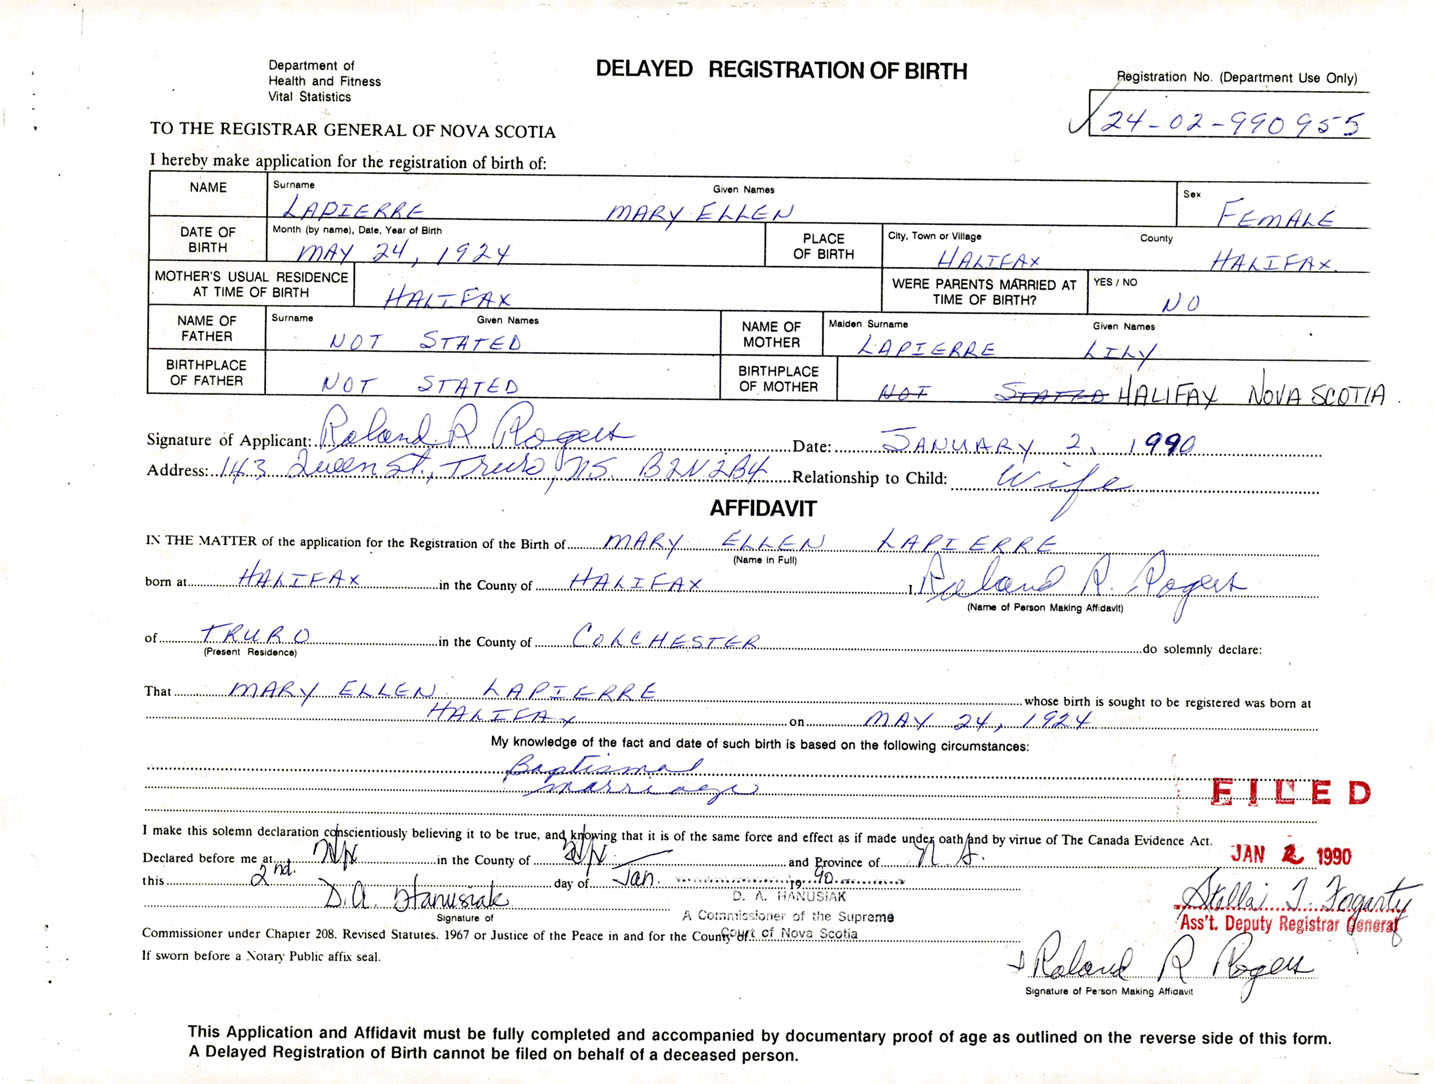 Department of
Health and Fitness
Vital Statistics
DELAYED REGISTRATION OF BIRTH
Registration No. (Department Use Only)
24-02-990955
TO THE REGISTRAR GENERAL OF NOVA SCOTIA
I hereby make application for the registration of birth of:
NAME Surname Given Names Sex
LAPIERRE MARY ELLEN FEMALE
DATE OF BIRTH Month (by name), Date, Year of Birth PLACE OF BIRTH City, Town or Village County
MAY 24, 1924 HALIFAX HALIFAX.
MOTHER'S USUAL RESIDENCE AT TIME OF BIRTH HALIFAX WERE PARENTS MARRIED AT TIME OF BIRTH? YES / NO NO
NAME OF FATHER Surname Given Names NAME OF MOTHER Maiden Surname Given Names
NOT STATED LAPIERRE LILY
BIRTHPLACE OF FATHER NOT STATED BIRTHPLACE OF MOTHER NOT STATED HALIFAX NOVA SCOTIA.
Signature of Applicant: Roland R Rogers Date: JANUARY 2, 1990
Address: 143 Queen St., Truro, NS. B2N2B4 Relationship to Child: Wife
AFFIDAVIT
IN THE MATTER of the application for the Registration of the Birth of MARY ELLEN LAPIERRE
(Name in Full)
born at HALIFAX in the County of HALIFAX I, Roland R. Rogers
(Name of Person Making Affidavit)
of TRURO in the County of COLCHESTER do solemnly declare:
(Present Residence)
That MARY ELLEN LAPIERRE whose birth is sought to be registered was born at
HALIFAX on MAY 24, 1924
My knowledge of the fact and date of such birth is based on the following circumstances:
Baptismal
marriage
FILED
I make this solemn declaration conscientiously believing it to be true, and knowing that it is of the same force and effect as if made under oath and by virtue of The Canada Evidence Act.
JAN 2 1990
Declared before me at Hfx in the County of Hfx and Province of N.S.
this 2nd. day of Jan. 1990.
D. A. HANUSIAK
D.A. Hanusiak
Signature of
A Commissioner of the Supreme
Court of Nova Scotia
Stella T. Fogarty
Ass't. Deputy Registrar General
Commissioner under Chapter 208. Revised Statutes. 1967 or Justice of the Peace in and for the County of
If sworn before a Notary Public affix seal.
Roland R Rogers
Signature of Person Making Affidavit
This Application and Affidavit must be fully completed and accompanied by documentary proof of age as outlined on the reverse side of this form.
A Delayed Registration of Birth cannot be filed on behalf of a deceased person.